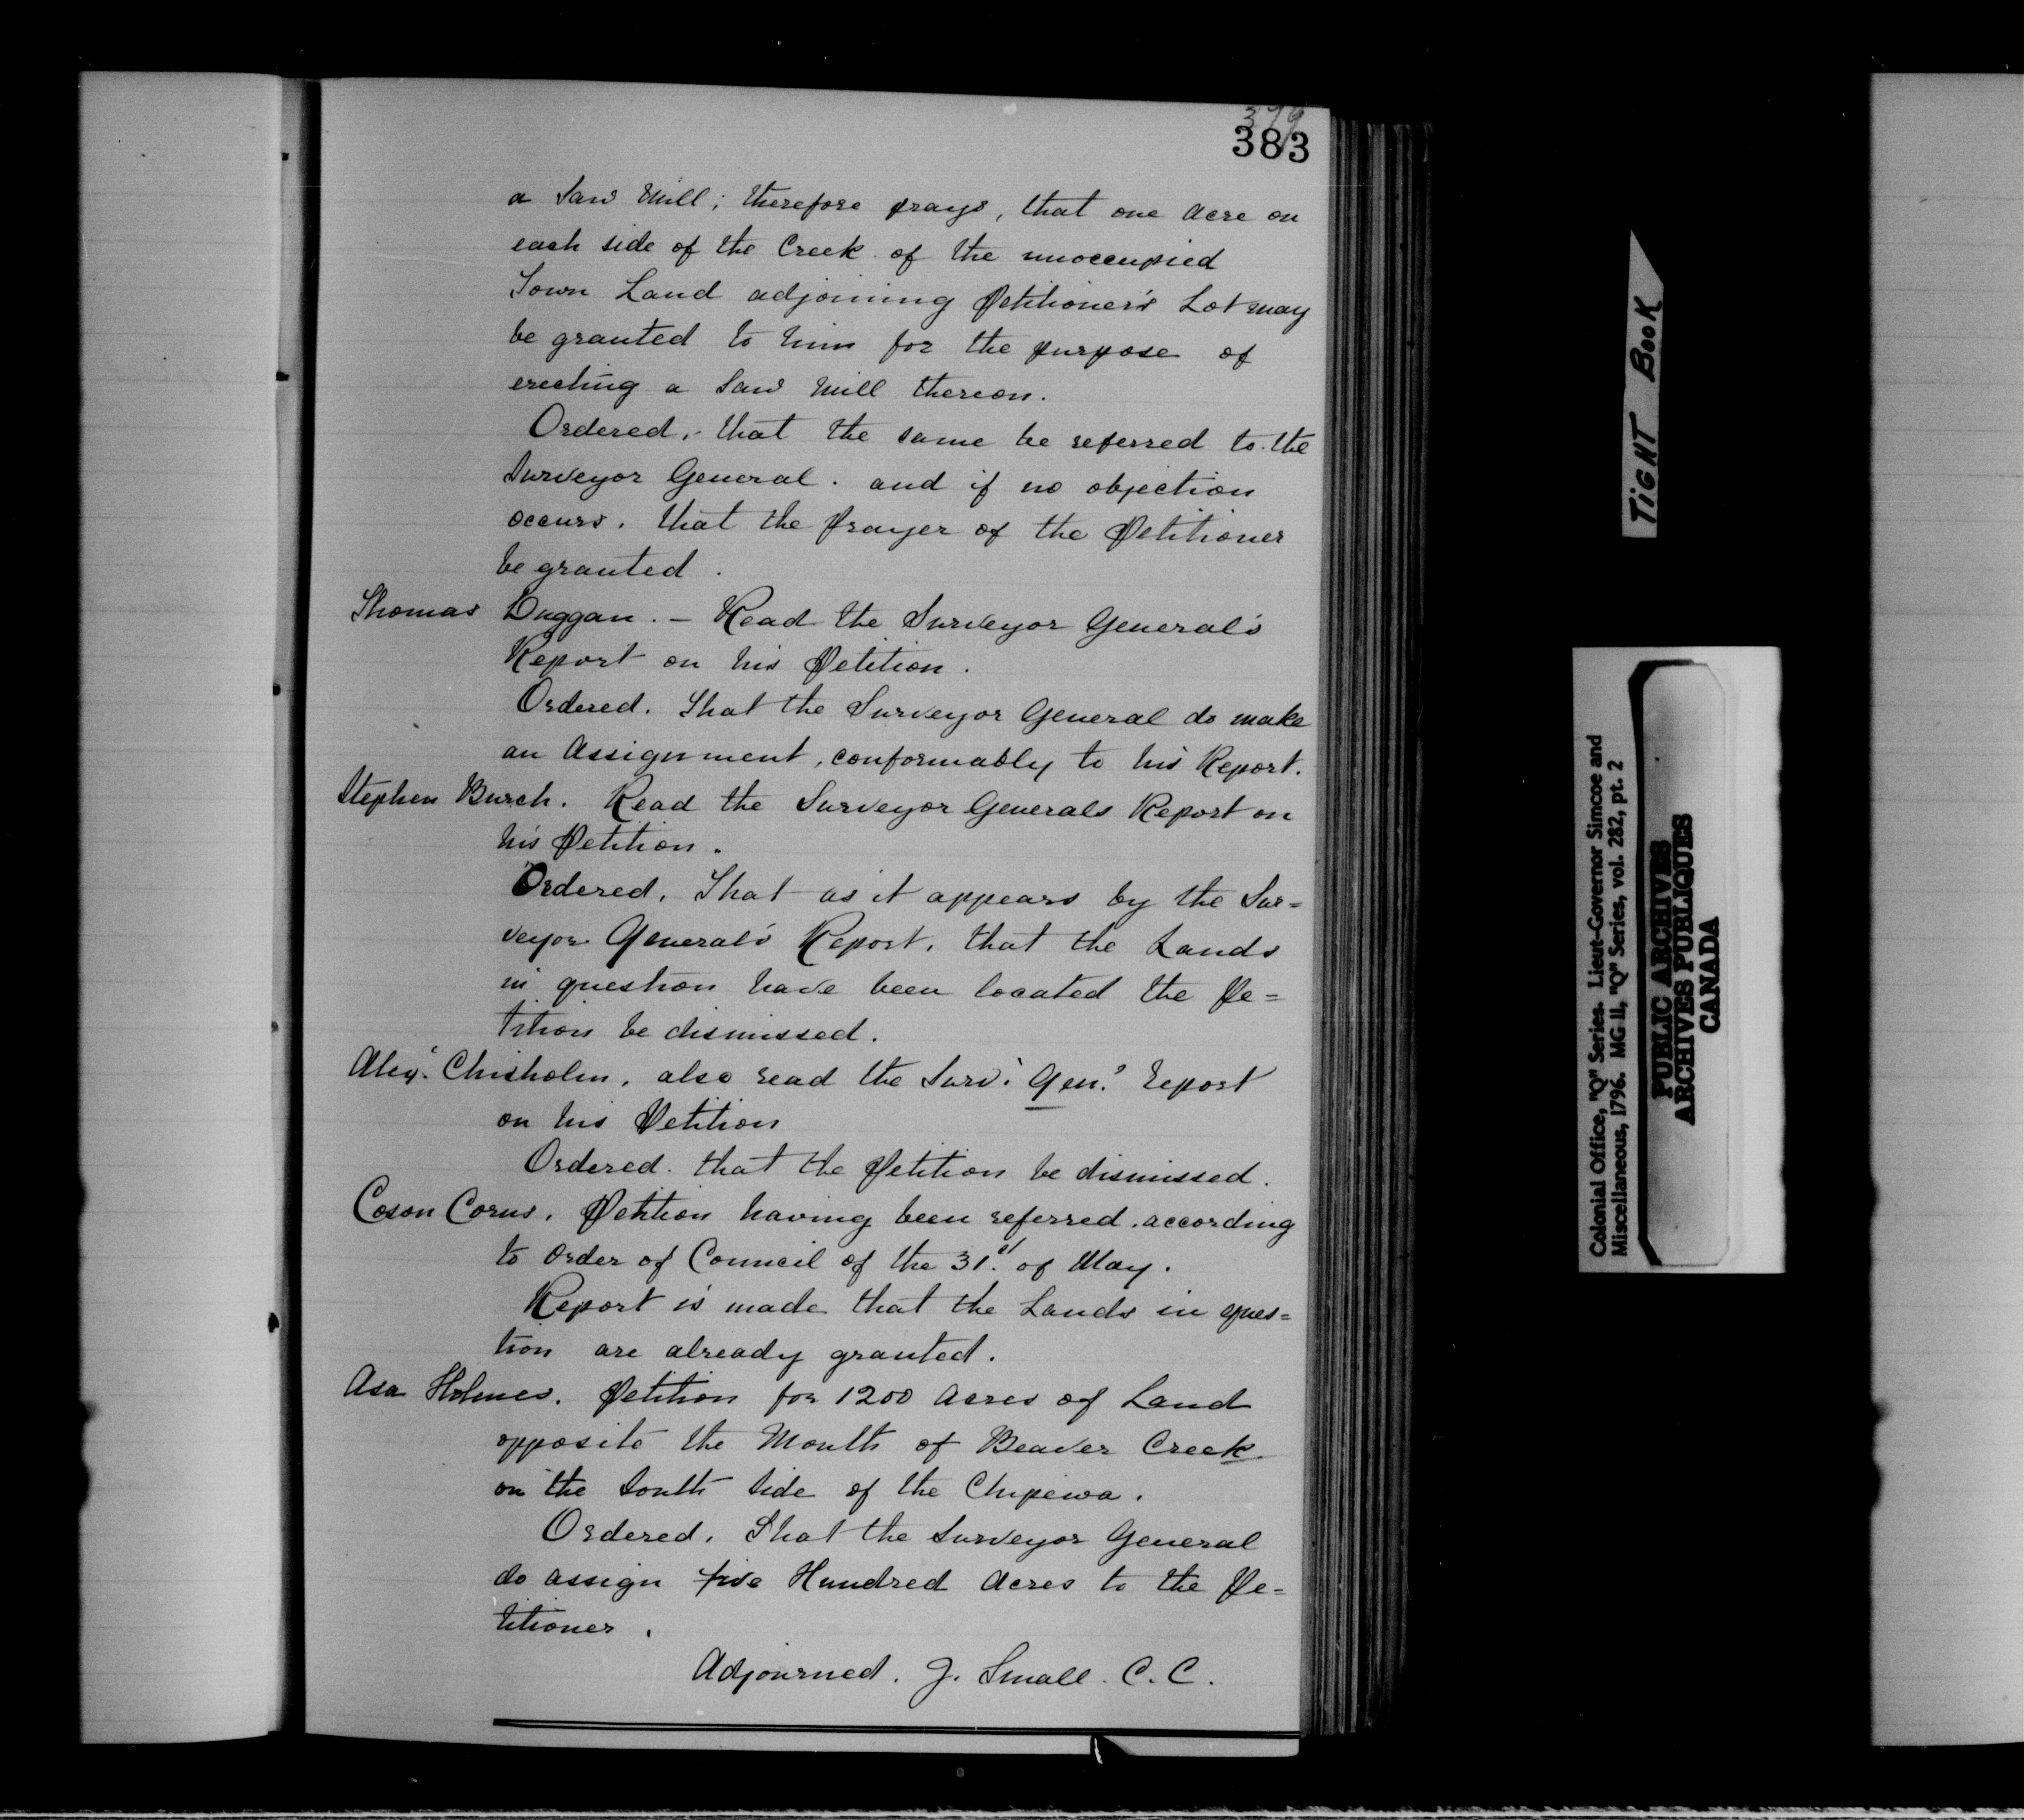 379
383
a Saw Mill; therefore prays, that one Acre on
each side of the Creek of the unoccupied
Town Land adjoining Petitioner's Lot may
be granted to him for the purpose of
erecting a Saw Mill thereon.
Ordered, that the same be referred to the
Surveyor General. and if no objection
occurs. that the Prayer of the Petitioner
be granted.
Thomas Duggan. – Read the Surveyor General's
Report on his Petition.
Ordered. That the Surveyor General do make
an Assignment, conformably to his Report.
Stephen Burch. Read the Surveyor Generals Report on
his Petition.
Ordered. That as it appears by the Sur=
veyor General's Report, that the Lands
in question have been located the Pe=
tition be dismissed.
Alexr. Chisholm, also read the Survr. Genl. report
on his Petition
Ordered. that the Petition be dismissed.
Coson Corus. Petition having been referred. according
to Order of Council of the 31st. of May.
Report is made that the Lands in ques=
tion are already granted.
Asa Holmes. Petition for 1200 Acres of Land
opposite the Mouth of Beaver Creek
on the South Side of the Chipewa.
Ordered. That the Surveyor General
do assign five Hundred Acres to the Pe=
titioner.
Adjourned. J. Small. C. C.
TIGHT BOOK
Colonial Office, "Q" Series. Lieut-Governor Simcoe and
Miscellaneous, 1796. MG 11, "Q" Series, vol. 282, pt. 2
PUBLIC ARCHIVES
ARCHIVES PUBLIQUES
CANADA